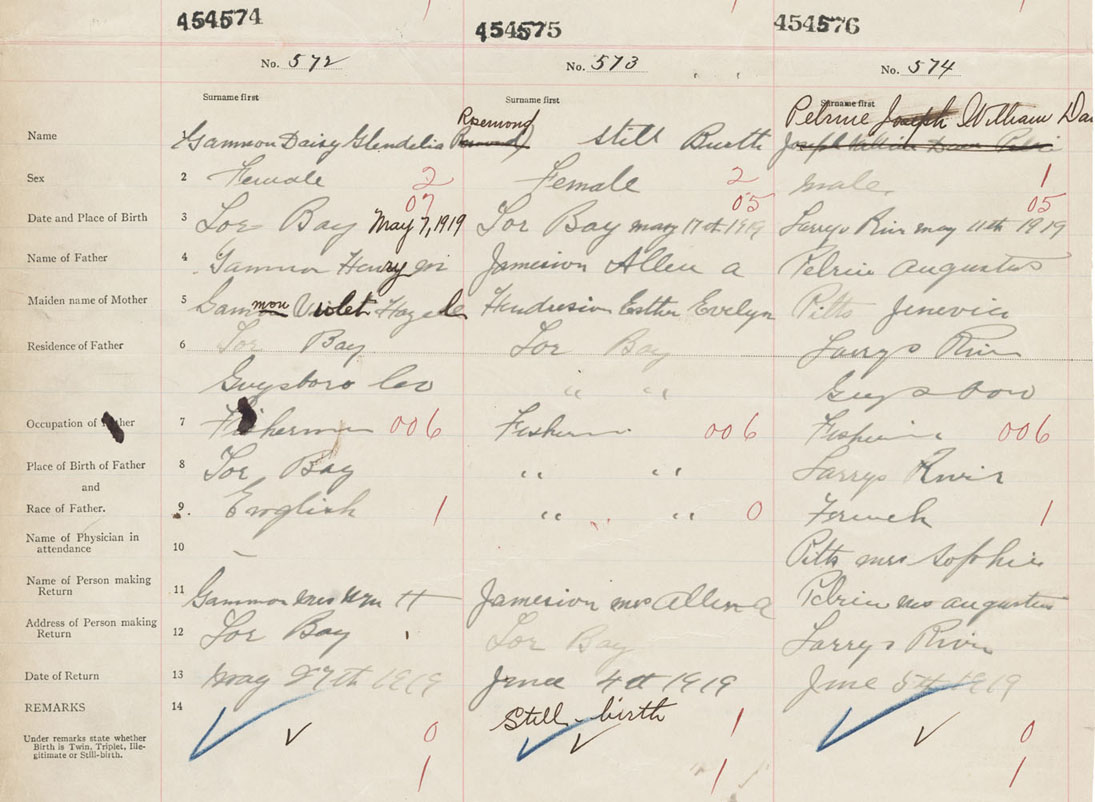 454574 454575 454576
No. 572 No. 573 No. 574
Surname first Surname first Surname first
Rosemond Petrie Joseph William
Name 1 Gammon Daisy Glendelia Still Burth
Sex 2 Female 2 Female 2 male 1
07 05 05
Date and Place of Birth 3 Tor Bay May 7, 1919 Tor Bay may 17th 1919 Larrys River may 11th 1919
Name of Father 4 Gammon Henry Jamesion Allen a Augustus
Maiden name of Mother 5 Gammon Violet Hazel Esther Evelyn Pitts Jenevier
Residence of Father 6 Tor Bay Tor Bay Larrys River
Guysboro Co " " Guysboro
Occupation of 7 Fisherman 006 006 006
Place of Birth of Father 8 Tor Bay " " Larrys River
and
Race of Father. 9 English 1 " " 0 French 1
Name of Physician in
attendance 10 — Pitts mrs Sophie
Name of Person making
Return 11 Gammon mrs Wm H Jamesion mrs Allen a mrs augustus
Address of Person making
Return 12 Tor Bay Tor Bay Larrys River
Date of Return 13 May 27th 1919 June 4th 1919 June 5th 1919
REMARKS 14
Still-birth 1
Under remarks state whether
Birth is Twin, Triplet, Ille-
gitimate or Still-birth.
0 0
1 1 1